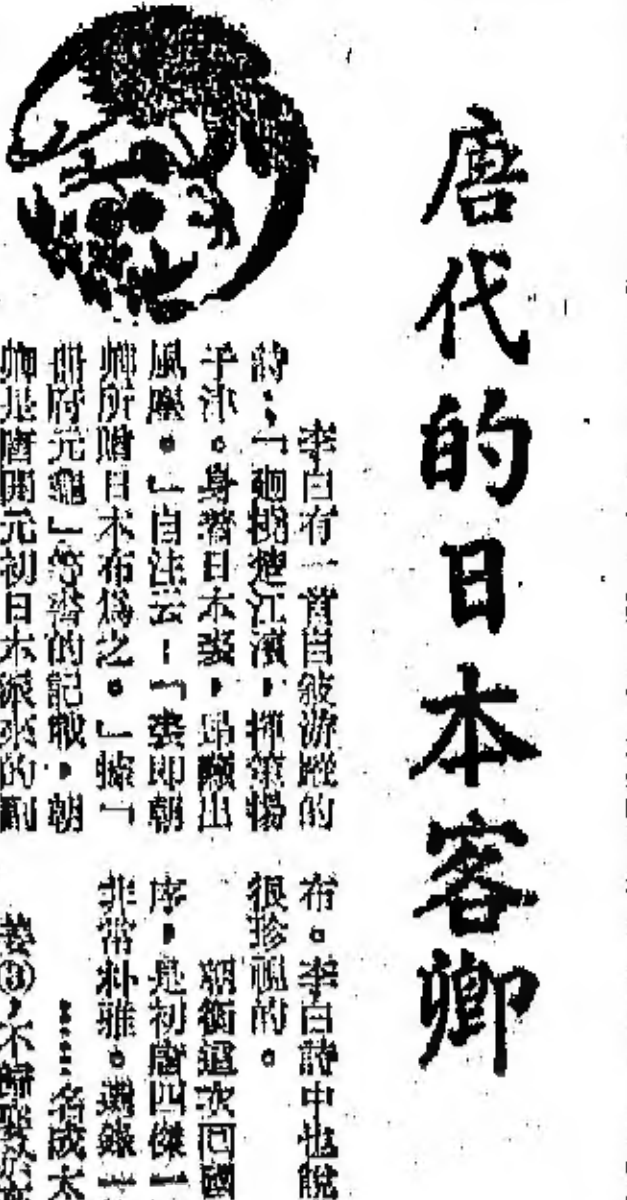 唐代的日本客卿
李白有一首自敍游蹤的
詩：「 楚江濱，揮策揚
子津。身著日本裘，昂藏出
風塵。」自注云：「裘即朝
卿所贈日本布爲之。」據「
册府元龜」等書的記載，朝
卿是唐開元初日本派來的副
布。李白詩中也說
很珍視的。
朝衡這次回國
序，是初唐四傑
非常朴雅。選錄一
……名成太
③，不歸